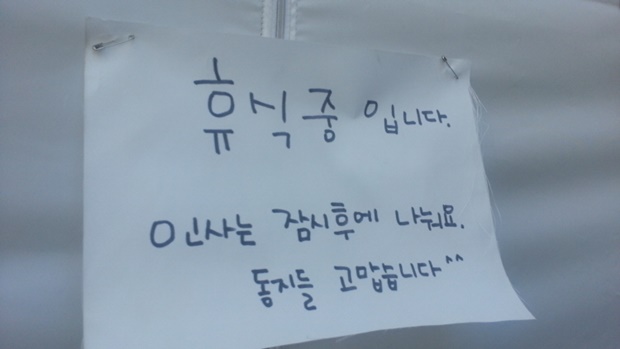 휴식중입니다.
인사는 잠시후에 나눠요.
동지들 고맙습니다^^